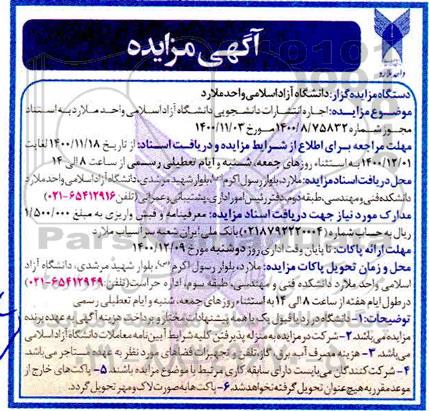 آگهی مزایده
واحد ملارد
دستگاه مزایده گزار: دانشگاه آزاد اسلامی واحد ملارد
موضوع مزایده: اجاره انتشارات دانشجویی دانشگاه آزاد اسلامی واحد ملارد به استناد
مجوز شماره ۱۴۰۰/۸/۷۵۸۳۲ مورخ ۱۴۰۰/۱۱/۰۳
مهلت مراجعه برای اطلاع از شرایط مزایده و دریافت اسناد: از تاریخ ۱۴۰۰/۱۱/۱۸ لغایت
۱۴۰۰/۱۲/۰۱ به استثناء روزهای جمعه، شنبه و ایام تعطیلی رسمی از ساعت ۸ الی ۱۴
محل دریافت اسناد مزایده: ملارد، بلوار رسول اکرم بلوار شهید مرشدی، دانشگاه آزاد اسلامی واحد ملارد
دانشکده فنی و مهندسی، طبقه دوم، دفتر رئیس امور اداری، پشتیبانی و عمرانی (تلفن ۶۵۴۱۲۹۱۶-۰۲۱)
مدارک مورد نیاز جهت دریافت اسناد مزایده: معرفینامه و فیش واریزی به مبلغ ۱/۵۰۰/۰۰۰
ریال به حساب شماره (۰۲۱۸۷۹۲۲۲۰۰۰۴) بانک ملی ایران شعبه سرآسیاب ملارد
مهلت ارائه پاکات: تا پایان وقت اداری روز دوشنبه مورخ ۱۴۰۰/۱۲/۰۹
محل و زمان تحویل پاکات مزایده: ملارد، بلوار رسول اکرم بلوار شهید مرشدی، دانشگاه آزاد
اسلامی واحد ملارد دانشکده فنی و مهندسی، طبقه سوم، اداره حراست (تلفن ۶۵۴۱۲۹۴۹-۰۲۱)
در طول ایام هفته از ساعت ۸ الی ۱۴ به استثناء روزهای جمعه، شنبه و ایام تعطیل رسمی
توضیحات: ۱- دانشگاه در رد یا قبول یک یا همه پیشنهادات مختار و پرداخت هزینه آگهی به عهده برنده
مزایده می‌باشد. ۲- شرکت در مزایده به منزله پذیرفتن کلیه شرایط آیین‌نامه معاملات دانشگاه آزاد اسلامی
می‌باشد. ۳- هزینه مصرف آب، برق، گاز، تلفن و تجهیزات فضاهای مورد نظر به عهده مستاجر می‌باشد.
۴- شرکت کنندگان می‌بایست دارای سابقه کاری مرتبط با موضوع مزایده باشند. ۵- پاکت‌های خارج از
موعد مقرر به هیچ عنوان تحویل گرفته نخواهد شد. ۶- پاکت‌ها به صورت لاک و مهر تحویل گردد.